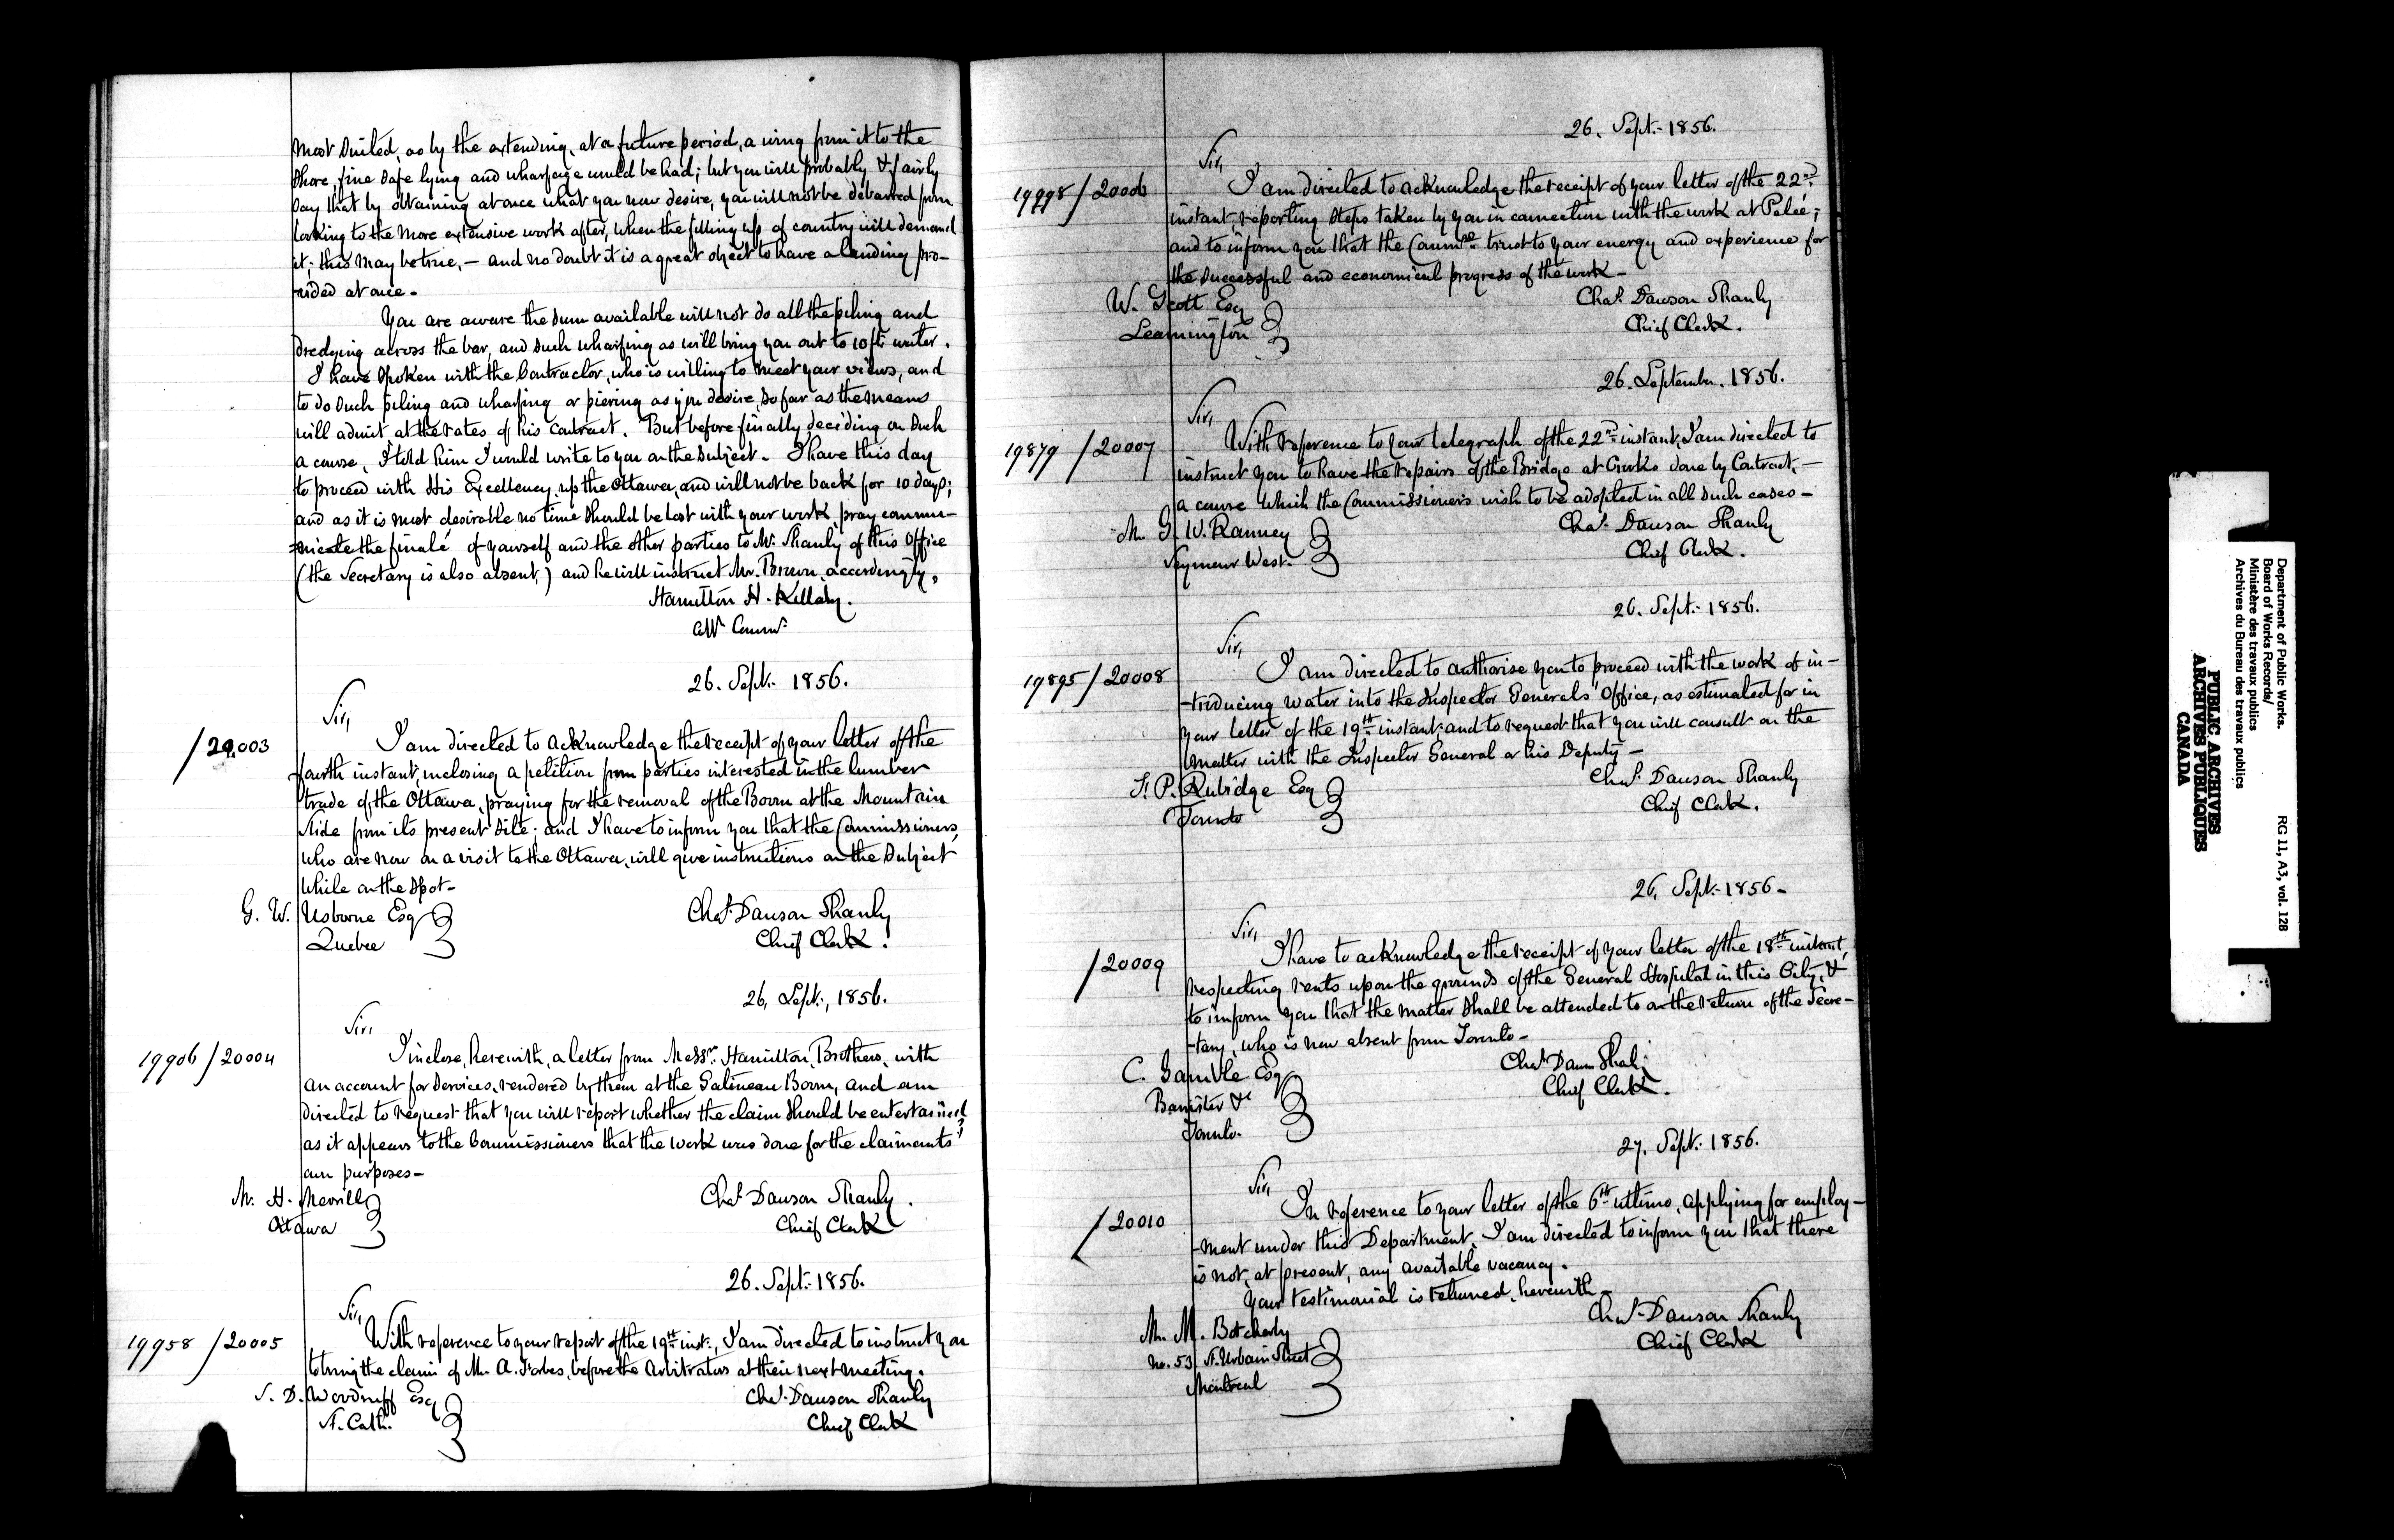 most suited, as by the extending, at a future period, a wing from it to the
shore, fine safe lying and wharfage would be had; but you will probably & fairly
say that by obtaining at once what you now desire, you will not be debarred from
looking to the more extensive work after, when the filling up of country will demand
it; this may be true, — and no doubt it is a great object to have a landing pro-
-vided at once.
You are aware the sum available will not do all the piling and
dredging across the bar, and such wharfing as will bring you out to 10 ft. water.
I have spoken with the Contractor, who is willing to meet your views, and
to do such piling and wharfing or piering as you desire, so far as the means
will admit, at the rates of his contract. But before finally deciding on such
a course, I told him I would write to you on the subject. I have this day
to proceed with His Excellency up the Ottawa, and will not be back for 10 days;
and as it is most desirable no time should be lost with your work, pray commu-
-nicate the finalé of yourself and the other parties to Mr. Shanly of this Office
(the Secretary is also absent,) and he will instruct Mr. Brown, accordingly.
Hamilton H. Killaly.
Asst. Commr.
26. Sept. 1856.
Sir,
/20,003
I am directed to acknowledge the receipt of your letter of the
fourth instant, inclosing a petition from parties interested in the lumber
trade of the Ottawa, praying for the removal of the Boom at the Mountain
Slide from its present site; and I have to inform you that the Commissioners,
who are now on a visit to the Ottawa, will give instructions on the subject
while on the spot—
G. W. Usborne Esq
Quebec
Chas. Dawson Shanly
Chief Clerk.
26, Sept., 1856.
Sir,
19906/20004
I inclose, herewith, a letter from Messrs. Hamilton, Brothers, with
an account for services rendered by them at the Gatineau Boom, and am
directed to request that you will report whether the claim should be entertained
as it appears to the Commissioners that the work was done for the claimants'
own purposes—
Mr. H. Merrill
Ottawa
Chas. Dawson Shanly.
Chief Clerk
26. Sept. 1856.
Sir,
19958/20005
With reference to your report of the 19th inst., I am directed to instruct you
to bring the claim of Mr. A. Forbes, before the Arbitrators at their next meeting.
S. D. Woodruff Esq
St. Cath.
Chas. Dawson Shanly
Chief Clerk
26. Sept. 1856.
Sir,
19998/20006
I am directed to acknowledge the receipt of your letter of the 22nd.
instant, reporting steps taken by you in connection with the work at Peleé;
and to inform you that the Commrs. trust to your energy and experience for
the successful and economical progress of the work—
W. Scott Esq
Leamington
Chas. Dawson Shanly
Chief Clerk.
26. September. 1856.
Sir,
19879/20007
With reference to your telegraph of the 22nd. instant, I am directed to
instruct you to have the repairs of the Bridge at Crooks done by Contract, —
a course which the Commissioners wish to be adopted in all such cases—
Mr. G. W. Ranney
Seymour West.
Chas. Dawson Shanly
Chief Clerk.
26. Sept. 1856.
Sir,
19895/20008
I am directed to authorise you to proceed with the work of in-
-troducing water into the Inspector Generals' Office, as estimated for in
your letter of the 19th instant; and to request that you will consult on the
matter with the Inspector General or his Deputy—
F. P. Rubidge Esq
Toronto
Chas. Dawson Shanly
Chief Clerk.
26, Sept. 1856—
Sir,
/20009
I have to acknowledge the receipt of your letter of the 18th instant,
respecting rents upon the grounds of the General Hospital in this City, &
to inform you that the matter shall be attended to on the return of the Secre-
-tary, who is now absent from Toronto—
C. Gamble Esq
Barrister &c
Toronto.
Chas. Dawson Shanly
Chief Clerk.
27. Sept. 1856.
Sir,
/20010
In reference to your letter of the 6th ultimo, applying for employ-
-ment under this Department, I am directed to inform you that there
is not, at present, any available vacancy.
Your testimonial is returned, herewith—
Mr. M. Botcherly
No. 53 St. Urbain Street
Montreal
Chas. Dawson Shanly
Chief Clerk
Department of Public Works. RG 11, A3, vol. 128
Board of Works Records/
Ministère des travaux publics
Archives du Bureau des travaux publics
PUBLIC ARCHIVES
ARCHIVES PUBLIQUES
CANADA